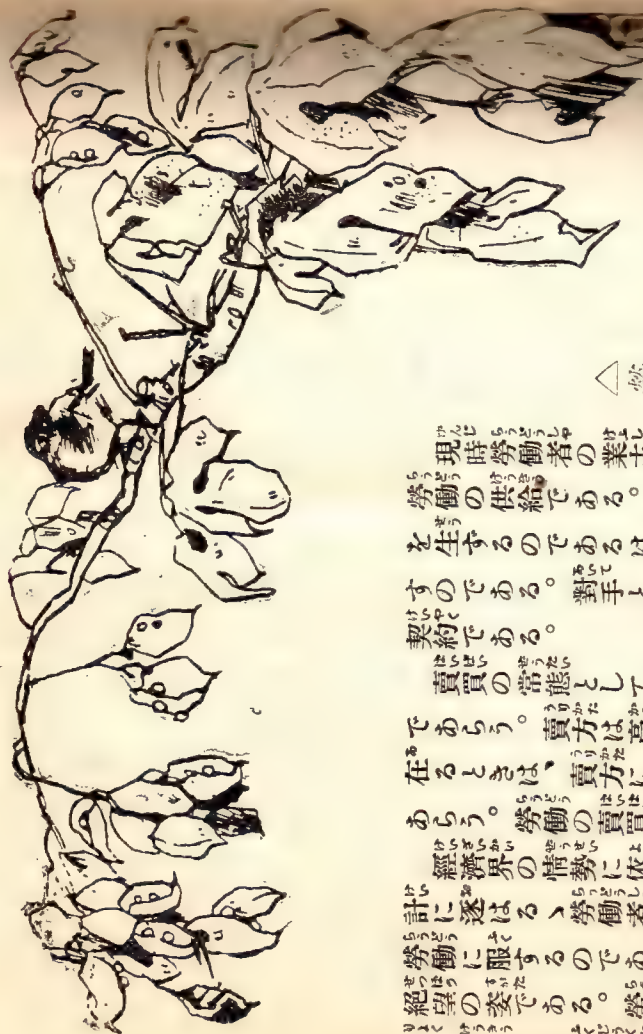 △
現時勞働者の業
勞働の供給である。
を生ずるのであるは
すのである。對手
契約である。
賣買の常態として
であらう。賣方は高
在るときは、賣方に
あらう。勞働の賣買
經濟界の情勢に依
計に逐はるゝ勞働者
勞働に服するのであ
絶望の姿である。勞